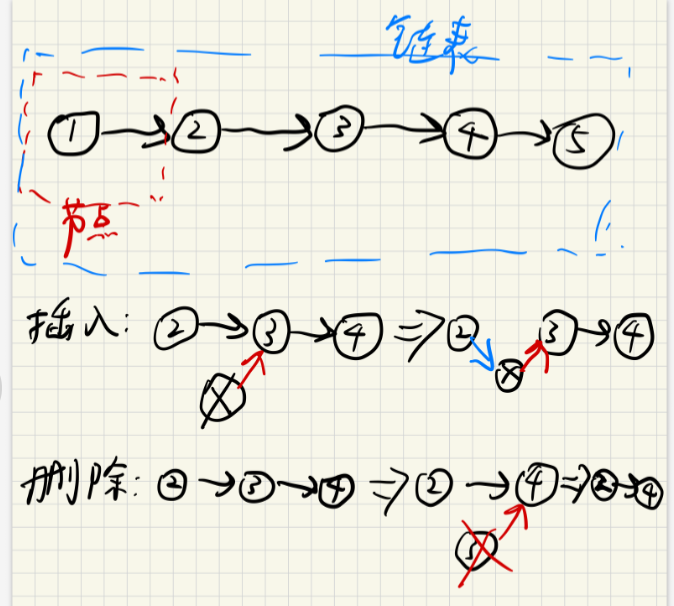 链表
1 → 2 → 3 → 4 → 5
节点
插入: 2 → 3 → 4 ⇒ 2 3 → 4
x x
删除: 2 → 3 → 4 ⇒ 2 → 4 ⇒ 2 → 4
3